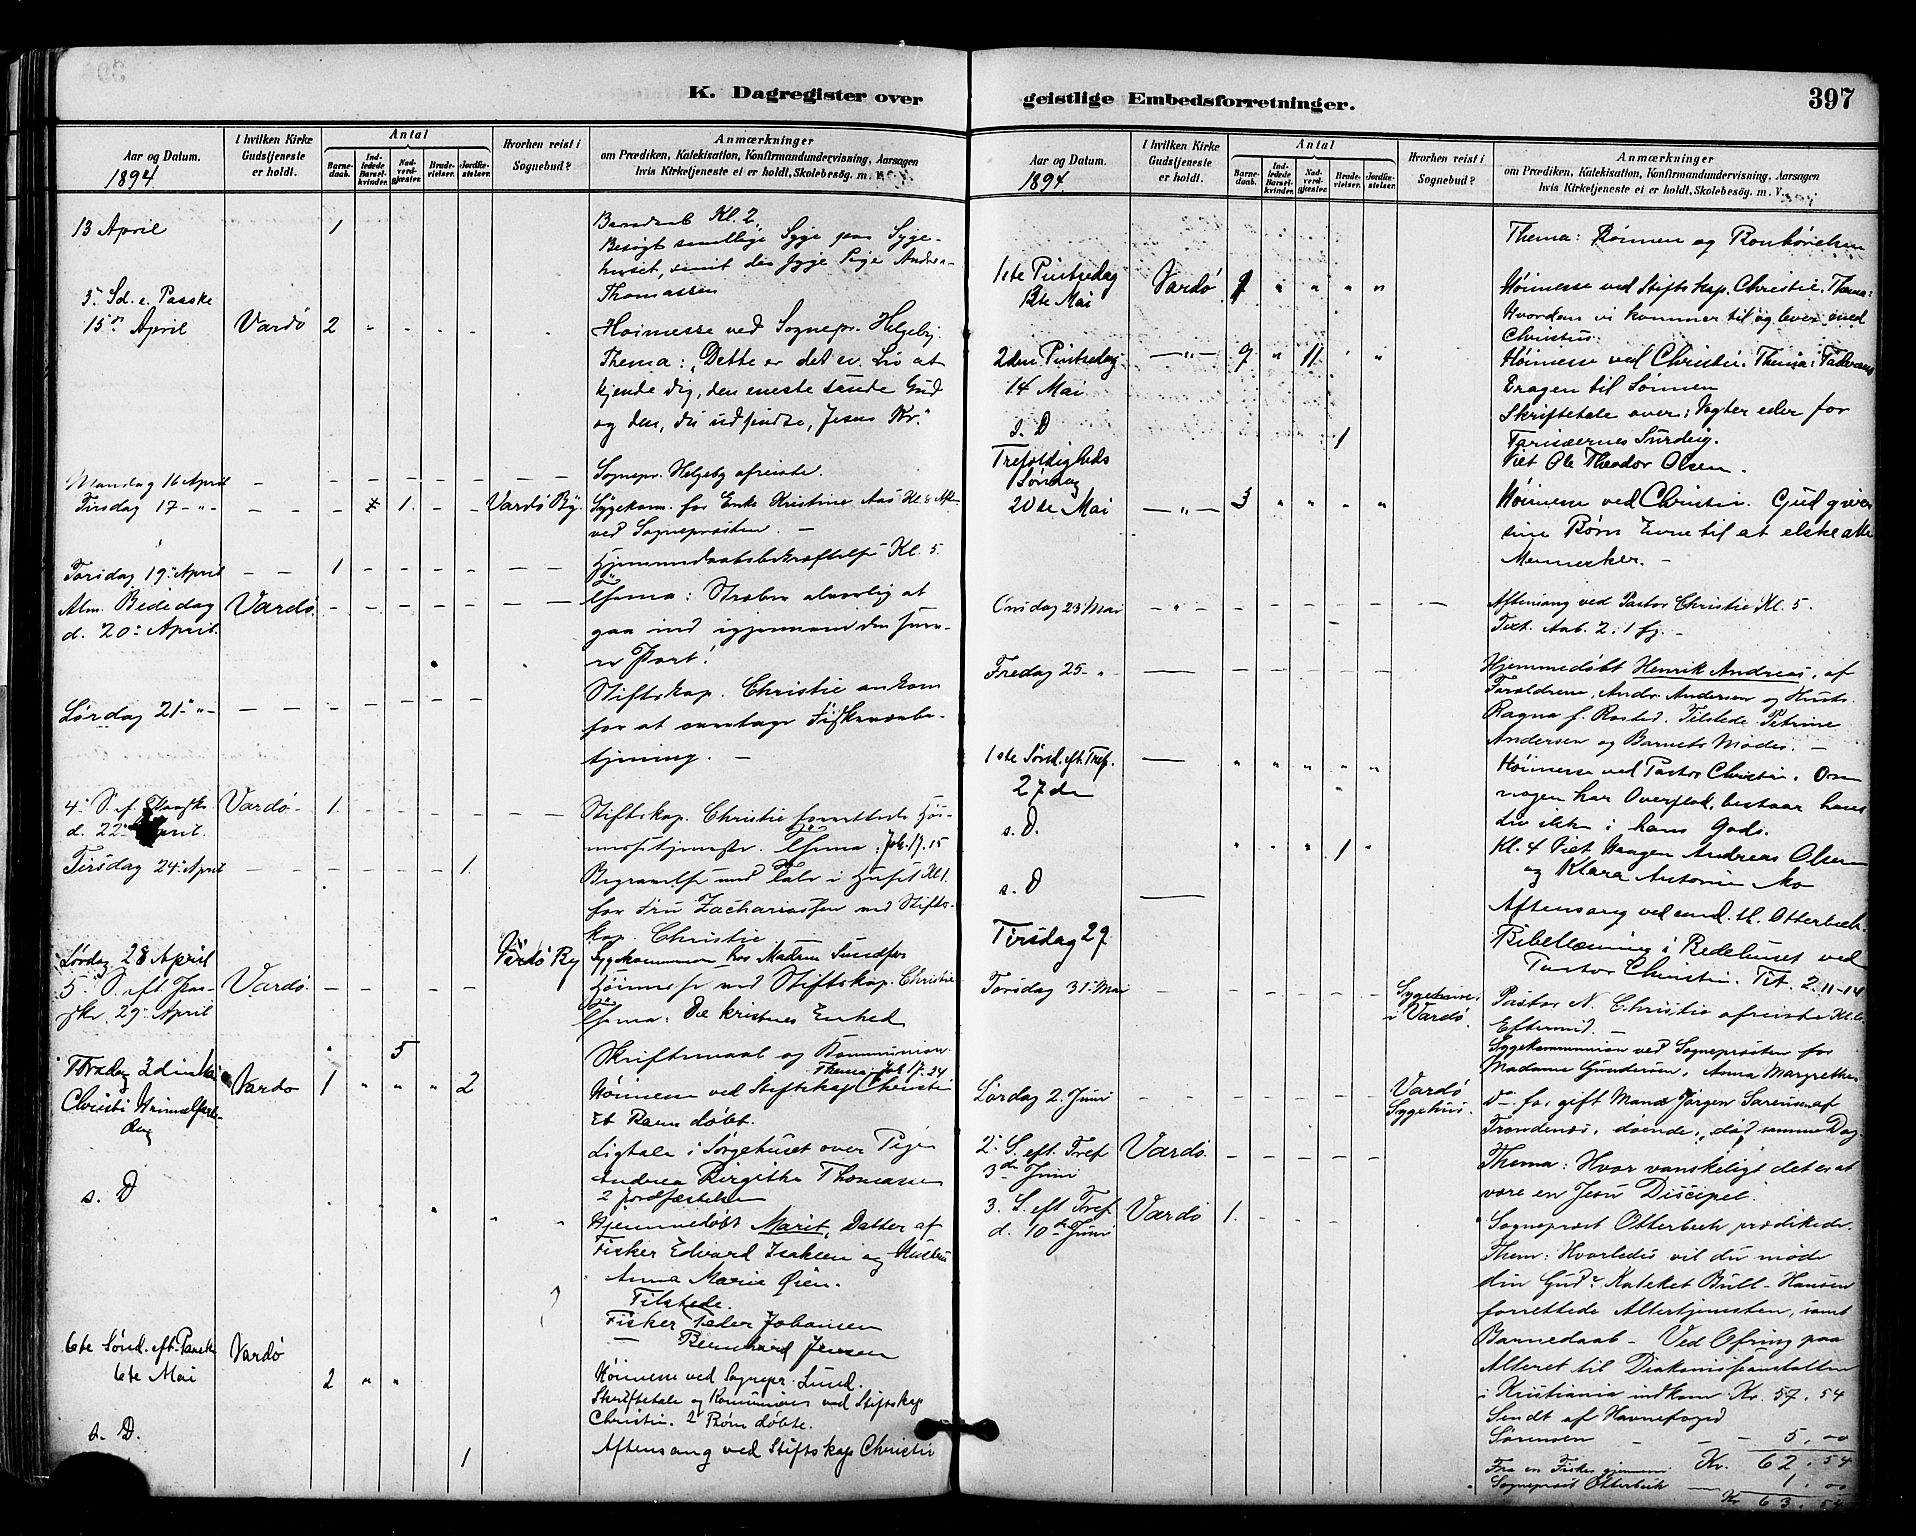 K. Dagregister over
Aar og Datum.
1894
I hvilken Kirke Gudstjeneste er holdt.
Antal
Barnedaab.
Indledede Barselkvinder.
Nadverdgjester.
Brudevielser.
Jordfæstelser.
Hvorhen reist i Sognebud?
Anmærkninger
om Prædiken, Katekisation, Konfirmandundervisning, Aarsagen
hvis Kirketjeneste ei er holdt, Skolebesøg. m. v.
13 April 1 Kl. 2
Besøgt samtlige Syge paa Syge-
huset, samt den syge Pige Andrea
Thomassen
3. Sd. e. Paaske
15de April Vardö 2 Høimesse ved Sognepr. Helgeby.
Thema: „Dette er det ev. Liv at
kjende dig, den eneste sande Gud
og den, du udsendte, Jesus Kr."
Mandag 16 April Sognepr. Helgeby afreiste.
Tirsdag 17 - „ - 1. Vardö By. Sygekom. for Enke Kristine Aas Kl. 8 Aft.
ved Sognepræsten. —
Torsdag 19. April 1 Hjemmedaabsbekræftelse Kl. 5.
Alm. Bededag Vardö. Thema: Stræber alvorlig at
d. 20. April. gaa ind igjennem den snev-
re Port!
Lørdag 21. „ - Stiftskap. Christie ankom
for at overtage Fiskeværsbe-
tjening. —
4. S. e. Paaske Vardö. 1. Stiftskap. Christie forrettede Høi-
d. 22. April. messetjeneste. Thema: Joh. 17. 15
Tirsdag 24. April 1. Begravelse med Tale i Huset Kl 1.
for Fru Zachariassen ved Stifts-
kap. Christie
Lørdag 28 April Vardö By Sygekommunion hos Madam Sundfør
5. S. eft. Paa- Vardö. Høimesse ved Stiftskap. Christie
ske. 29. April Thema: De kristnes Enhed
5 Skriftemaal og Kommunion.
Torsdag 3die Mai Vardö 1 2 Thema: Joh 17. 24
Høimesse ved Stiftskap Christie
Christi Himmelfarts-
dag Et Barn døbt.
Ligtale i Sørgehuset over Pigen
Andrea Birgitha Thomassen
s. D 2 Jordfæstelser
Hjemmedøbt Marit, Datter af
Fisker Edvard Isaksen og Hustru
Anna Marie Øien.
Tilstede.
Fisker Peder Johansen
— Bernhard Jensen
6te Sønd. eft. Paaske Vardö
6te Mai 2 Høimesse ved Sognepr. Lund.
Skriftetale og Kommunion ved Stiftskap
Christie. 2 Børn døbte.
s. D. 1 Aftensang ved Stiftskap Christie
geistlige Embedsforretninger.
397
Aar og Datum.
1894
I hvilken Kirke Gudstjeneste er holdt.
Antal
Barnedaab.
Indledede Barselkvinder.
Nadverdgjester.
Brudevielser.
Jordfæstelser.
Hvorhen reist i Sognebud?
Anmærkninger
om Prædiken, Katekisation, Konfirmandundervisning, Aarsagen
hvis Kirketjeneste ei er holdt, Skolebesøg. m. v.
Thema: Bønnen og Bønhørelsen
1ste Pintsedag Vardö Høimesse ved Stiftskap. Christie. Thema:
Mai Hvordan vi kommer til og lever med
Christus.
2den Pintsedag — „ — 7 11 Høimesse ved Christie. Thema: Faderens
14 Mai Dragen til Sønnen
Skriftetale over: Vogter eder for
s. D 1 Farisæernes Surdeig.
Viet Ole Theodor Olsen.
Trefoldigheds
Søndag
20de Mai — „ — 3 Høimesse ved Christie. Gud giver
sine Børn Evne til at elske alle
Mennesker. —
Onsdag 23 Mai Aftensang ved Pastor Christie Kl. 5.
Text. Aab. 2. 1 fg. —
Fredag 25 - „ Hjemmedøbt Henrik Andreas, af
Forældrene, Andr. Andersen og Hustr.
Ragna f. Rosted. Tilstede Petrine
Andersen og Barnets Moder. —
1ste Sønd. eft. Tref. Høimesse ved Pastor Christie. Om
27de nogen har Overflod, bestaar hans
Liv ikke i hans Gods.
s. D. 1 Kl. 4 Viet Haagen Andreas Olsen
og Klara Antonie Mo
s. D Aftensang ved cand. th. Otterbech.
Tirsdag 29 Bibellæsning i Bedehuset ved
Pastor Christie. Tit. 2. 11-14
Torsdag 31. Mai Sygehuset i Vardö. Pastor N. Christie afreiste Kl. 6
Eftermid. —
Sygekommunion ved Sognepræsten for
Madame Gundersen, Anna Margrethe.
Lørdag 2. Juni Vardö Sygehus. Do for gift Mand Jørgen Sørensen af
Trondenæs, døende, død samme Dag.
2. S. eft. Tref Vardö. Thema: Hvor vanskeligt det er at
3de Juni være en Jesu Discipel.
3. S. eft Tref Vardö 1. Sognepræst Otterbech prædikede.
d. 10de Juni Them: Hvorledes vil du møde
din Gud? Kateket Bull-Hansen
forrettede Altertjenesten, samt
Barnedaab — Ved Ofring paa
Alteret til Diakonisseanstalten
i Kristiania indkom Kr. 57. 54
Sendt af Havnefoged
Sørensen - - - 5. 00
Kr. 62. 54
Fra en Fisker gjennem
Sognepræst Otterbech — 1. 00
Kr 63. 54